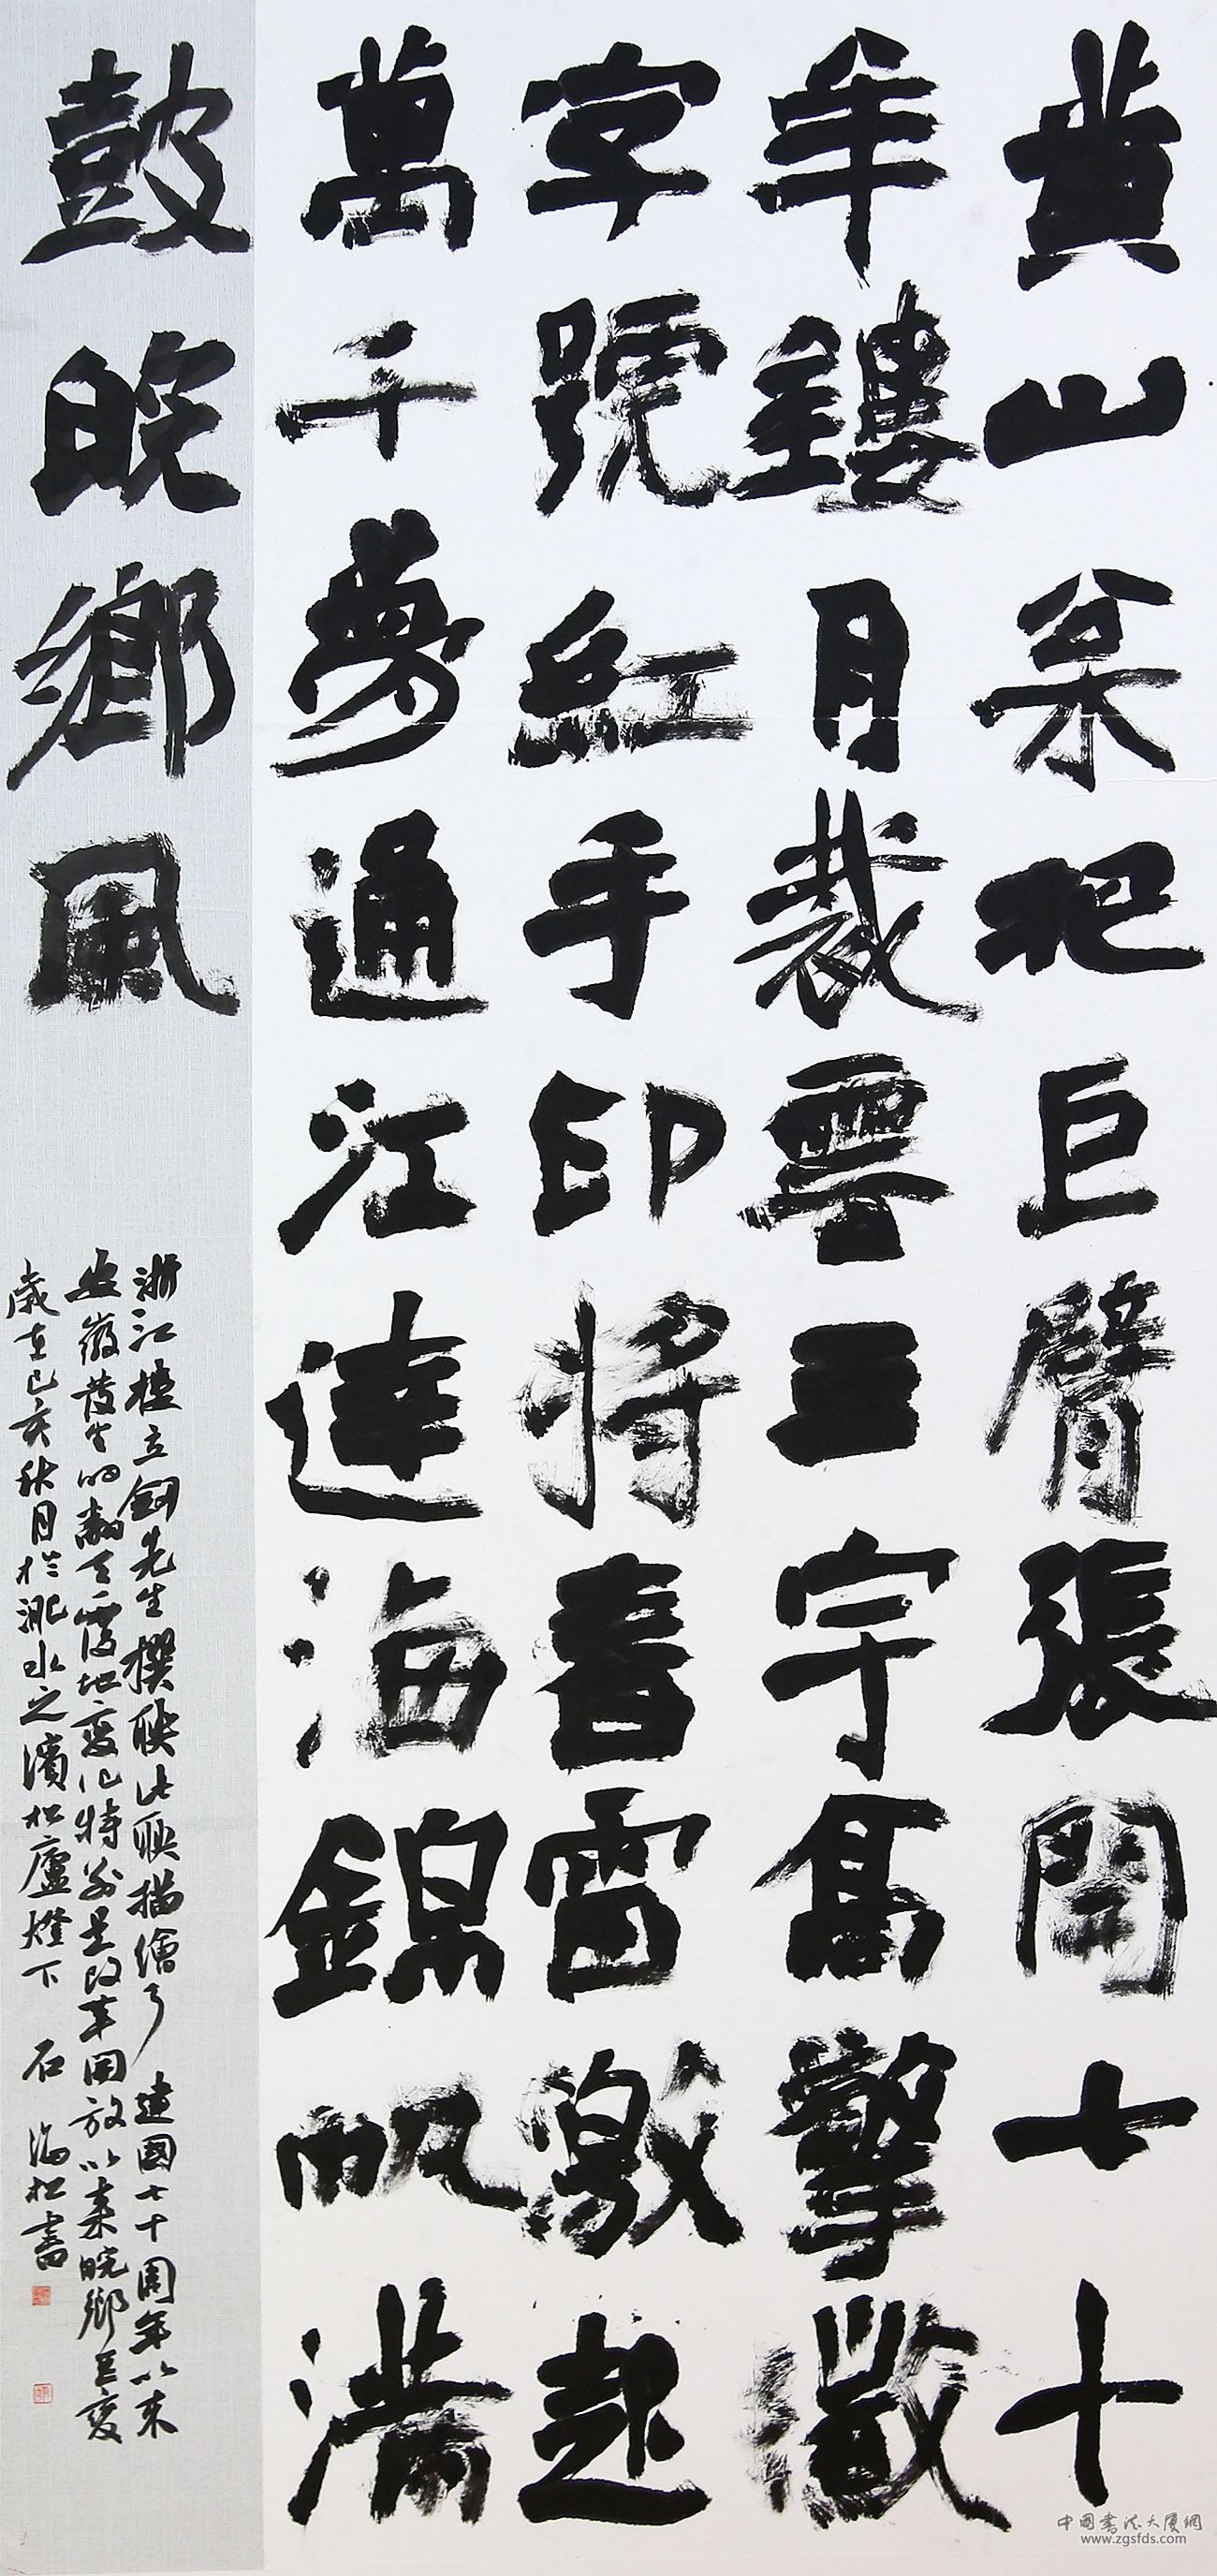 黄山枀把巨臂張開七十
年鏤月裁雲玉宇高擎徽
字號紅手印將春雷激起
萬千夢通江達海錦帆滿
鼓皖鄉風
浙江樓立劍先生撰聯此聯描繪了 建國七十周年以來
安徽發生的翻天覆地變化特别是改革開放以來皖鄉巨變
歲在己亥秋月於淝水之濱松廬燈下 石海松書
中國書法大廈網
www.zgsfds.com